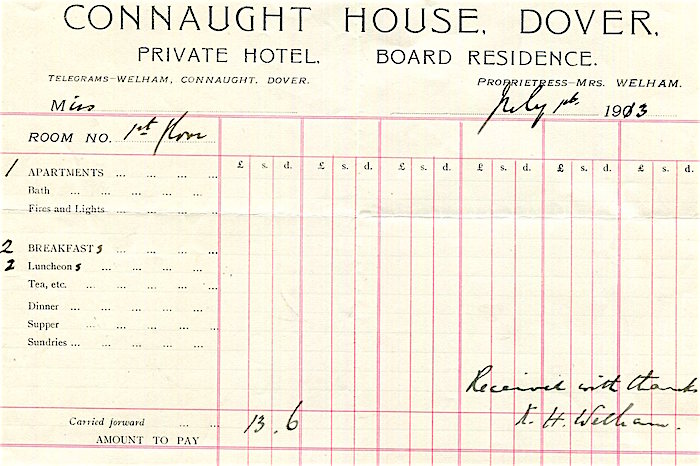 CONNAUGHT HOUSE. DOVER.
PRIVATE HOTEL. BOARD RESIDENCE.
TELEGRAMS-WELHAM, CONNAUGHT. DOVER. PROPRIETRESS-MRS. WELHAM.
Miss July 1st. 1913
ROOM NO. 1st floor
£ s. d. £ s. d. £ s. d. £ s. d. £ s. d. £ s. d.
1 APARTMENTS ... ... ... ...
Bath ... ... ... ... ...
Fires and Lights ... ... ... ...
2 BREAKFASTs ... ... ... ...
2 Luncheons ... ... ... ...
Tea, etc. ... ... ... ... ...
Dinner ... ... ... ... ...
Supper ... ... ... ... ...
Sundries ... ... ... ... ...
Received with thanks
Carried forward ... ... 13.6 H. Welham.
AMOUNT TO PAY